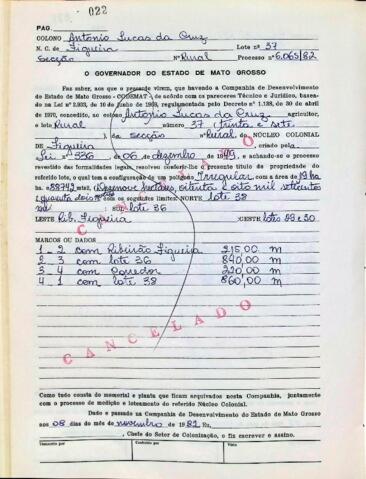 022
PAG.
COLONO Antonio Lucas da Cruz
N. C. de Figueira Lote nº 37
Secção Nº Rural Processo nº 6.065/82
O GOVERNADOR DO ESTADO DE MATO GROSSO
Faz saber, aos que o presente virem, que havendo a Companhia de Desenvolvimento
do Estado de Mato Grosso - CODEMAT - de acordo com os pareceres Técnico e Jurídico, basea-
do na Lei nº 2.933, de 10 de junho de 1969, regulamentada pelo Decreto nº 1.138, de 30 de abril
de 1970, concedido, ao colono Antonio Lucas da Cruz agricultor,
o lote Rural número 37 (trinta e sete
) da secção Nº Rural do NÚCLEO COLONIAL
DE Figueira criado pela
Lei nº 336 de 06 de dezembro 1949, e achando-se o processo
revestido das formalidades legais, resolveu conferir-lhe o presente título de propriedade do
referido lote, o qual tem a configuração de um polígono Irregular com a área de 19 ha
ha. 88742 mts2, (Dezenove hectares, oitenta e oito mil setecentos
e quarenta e dois metros com os seguintes limites: NORTE lote 38
SUL lote 36
LESTE Rib. Figueira OESTE lotes 29 e 30
MARCOS OU DADOS
1 - 2 com Ribeirão Figueira 215,00 m
2 - 3 com lote 36 840,00 m
3 - 4 com Corredor 220,00 m
4 - 1 com lote 38 860,00 m
CANCELADO
CANCELADO
Como tudo consta do memorial e planta que ficam arquivados nesta Companhia, juntamente
com o processo de medição e loteamento do referido Núcleo Colonial.
Dado e passado na Companhia de Desenvolvimento do Estado de Mato Grosso
aos 08 dias do mês de novembro de 1982 Eu,
, Chefe do Setor de Colonização, o fiz escrever e assino.
Transcrito por
Conferido por
Visto